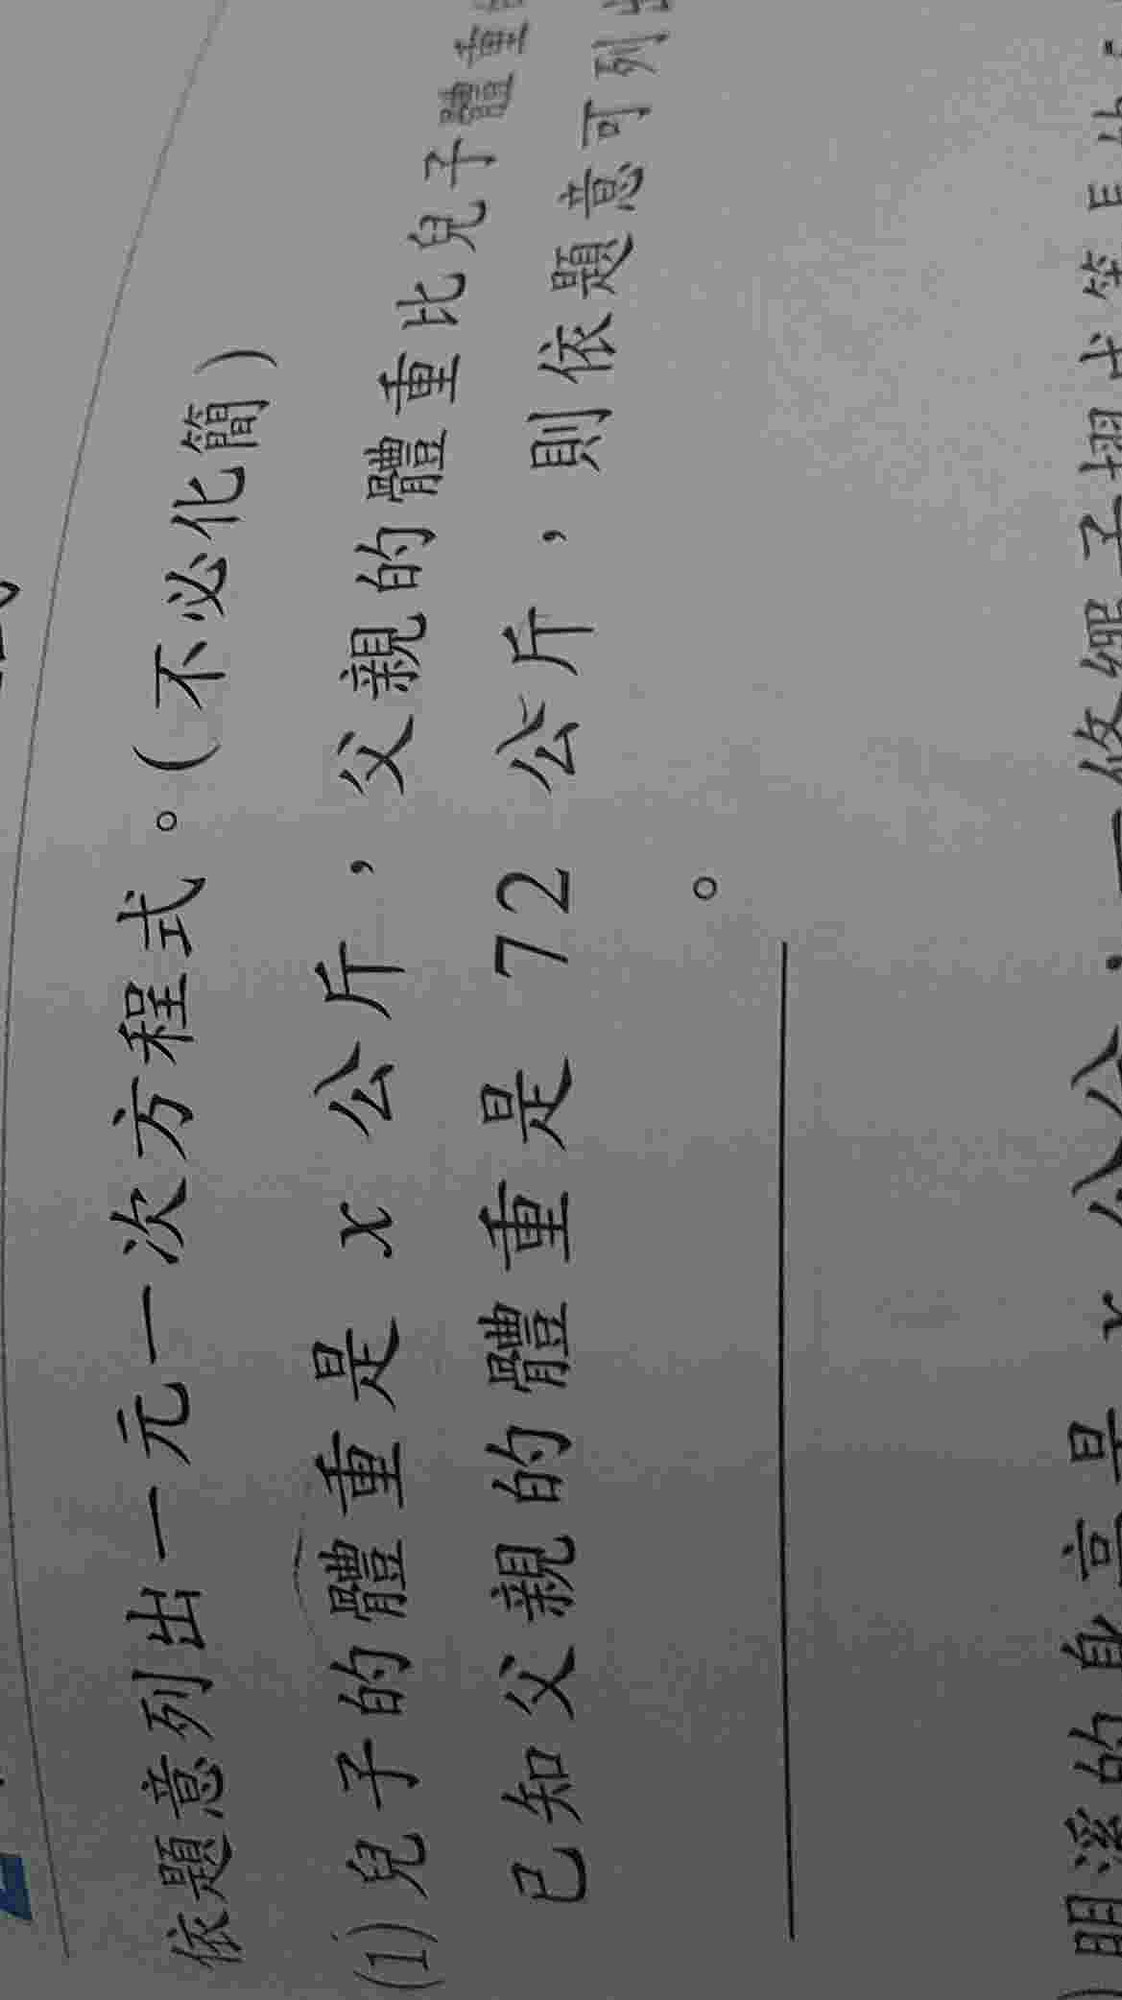 依題意列出一元一次方程式。(不必化簡)
(1) 兒子的體重是 x 公斤，父親的體重比兒子體重
已知父親的體重是 72 公斤，則依題意可列
。
明溪的身高是 x 公分，一條繩子摺成等長的